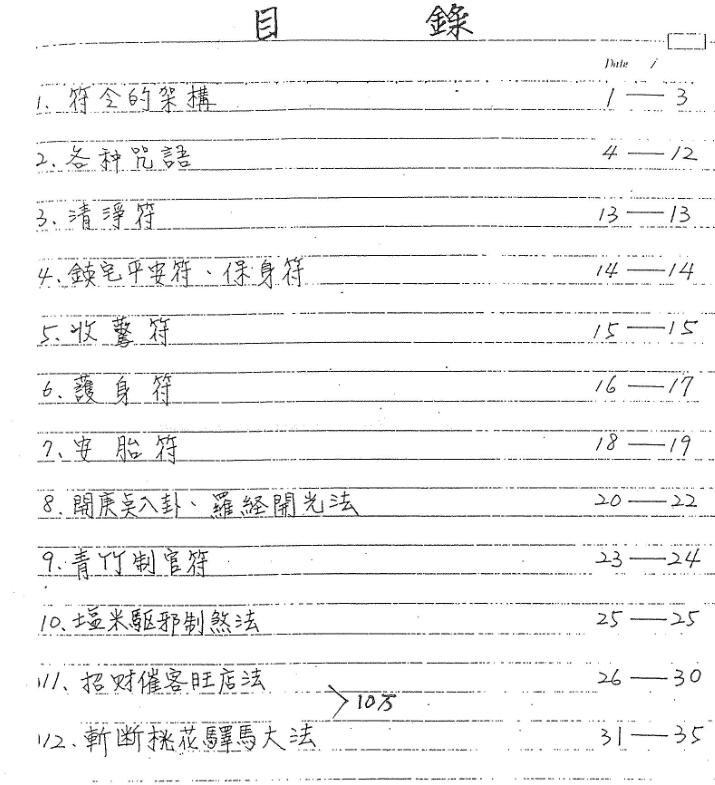 目 錄
Date /
1. 符令的架構 1 — 3
2. 各种咒語 4 — 12
3. 清淨符 13 — 13
4. 鎮宅平安符、保身符 14 — 14
5. 收驚符 15 — 15
6. 護身符 16 — 17
7. 安胎符 18 — 19
8. 開庚点八卦、羅経開光法 20 — 22
9. 青竹制官符 23 — 24
10. 塩米驅邪制煞法 25 — 25
11. 招财催客旺店法 26 — 30
> 10万
12. 斬断桃花驛馬大法 31 — 35